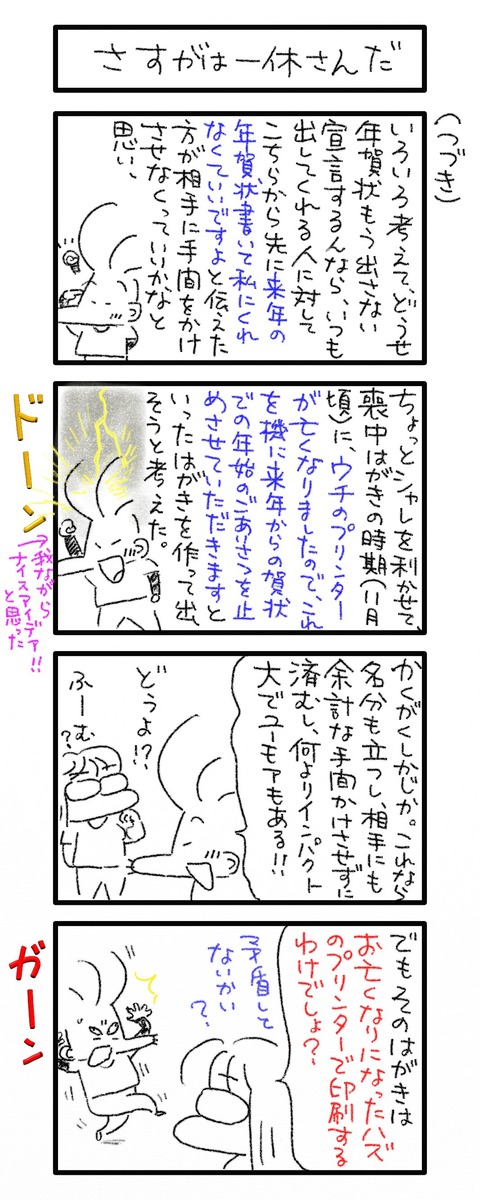 さすがは一休さんだ
(つづき)
いろいろ考えて、どうせ
年賀状もう出さない
宣言するんなら、いつも
出してくれる人に対して
こちらから先に来年の
年賀状書いて私にくれ
なくていいですよと伝えた
方が相手に手間をかけ
させなくっていいかなと
思い、
ちょっとシャレを利かせて、
喪中はがきの時期(11月
頃)に、ウチのプリンター
が亡くなりましたので、これ
を機に来年からの賀状
での年始のごあいさつを止
めさせていただきますと
いったはがきを作って出
そうと考えた。
ドーン
→我ながら
ナイスアイデア!!
と思った
かくがくしかじか。これなら
名分も立つし、相手にも
余計な手間かけさせずに
済むし、何よりインパクト
大でユーモアもある!!
どうよ!?
ふーむ?
でもそのはがきは
お亡くなりになったハズ
のプリンターで印刷する
わけでしょ?
矛盾して
ないかい
?
ガーン